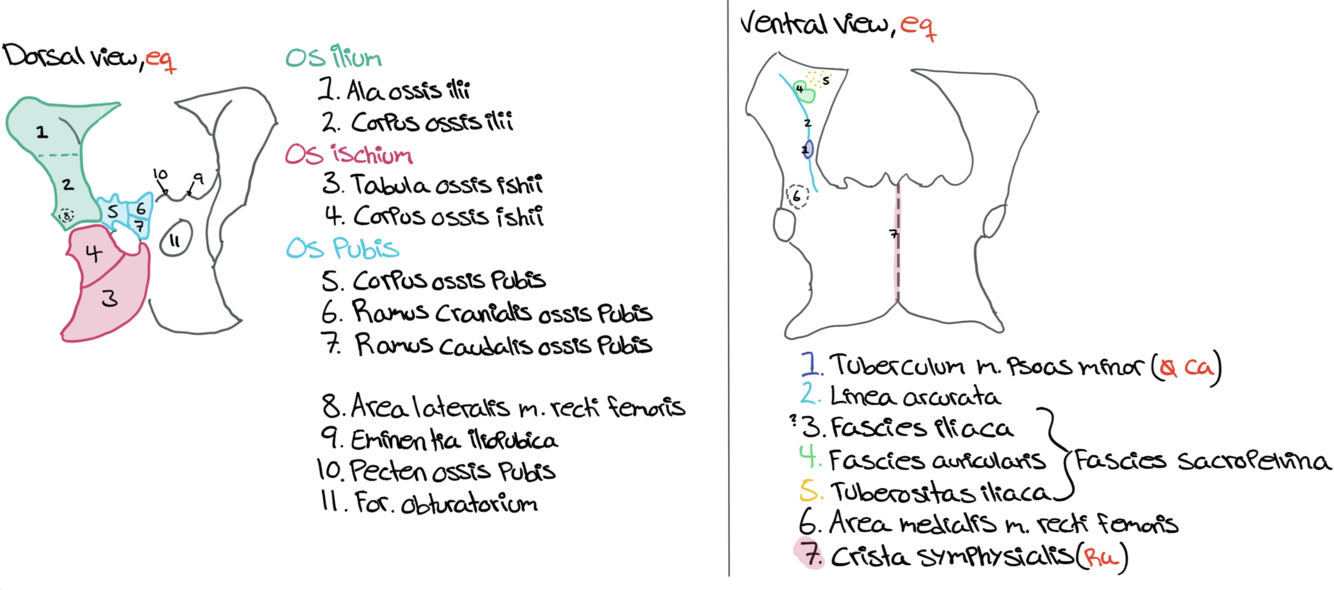 Dorsal view, eq
Os ilium
1. Ala ossis ilii
2. Corpus ossis ilii
Os ischium
3. Tabula ossis ishii
4. Corpus ossis ishii
Os Pubis
5. Corpus ossis Pubis
6. Ramus Cranialis ossis Pubis
7. Ramus Caudalis ossis Pubis
8. Area lateralis m. recti femoris
9. Eminentia iliopubica
10. Pecten ossis Pubis
11. For. obturatorium
1
2
8
5
6
7
4
3
10
9
11
Ventral view, eq
5
4
2
1
6
7
1. Tuberculum m. Psoas minor ( ca)
2. Linea arcurata
?3. Fascies iliaca
4. Fascies auricularis
5. Tuberositas iliaca
Fascies Sacropelvina
6. Area medialis m. recti femoris
7. Crista Symphysialis (Ru)